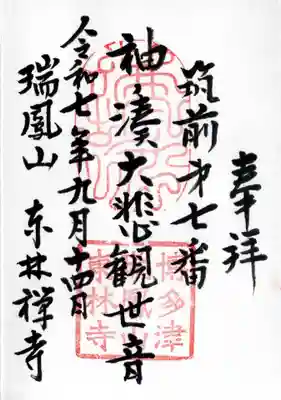 奉拝
筑前才七番
袖ノ湊大悲観世音
令和七年九月十四日
瑞鳳山 东林禅寺
博多津
瑞鳳山
東林寺